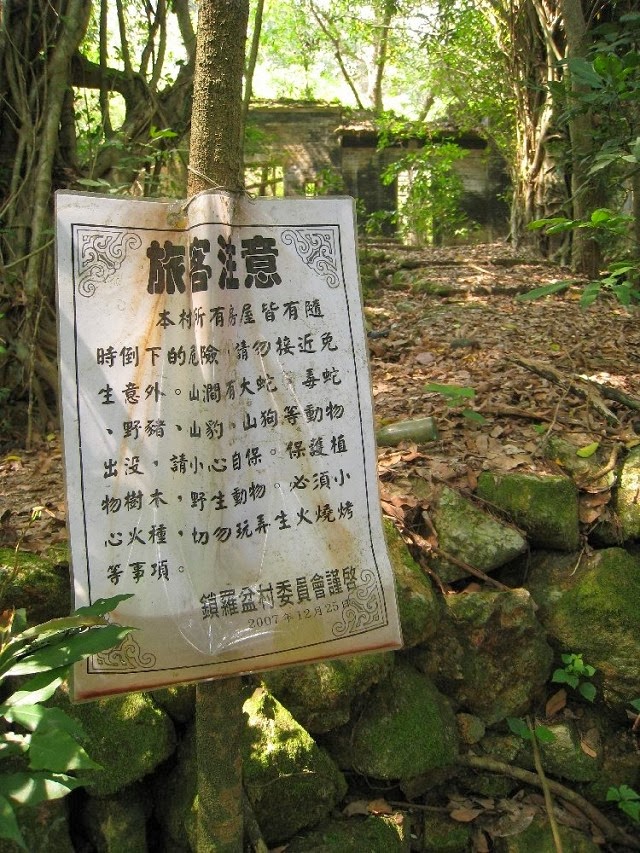 旅客注意
本村所有房屋皆有隨
時倒下的危險,請勿接近免
生意外。山澗有大蛇、毒蛇
、野豬,山豹,山狗等動物
出没,請小心自保。保護植
物樹木,野生動物。必須小
心火種,切勿玩弄生火燒烤
等事項。
鎖羅盆村委員會謹啓
2007年12月25日